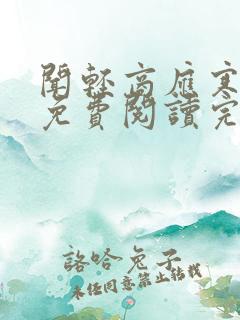 聞輕高應寒
免費閱讀完
諮哈兔子
未经同意禁止转载